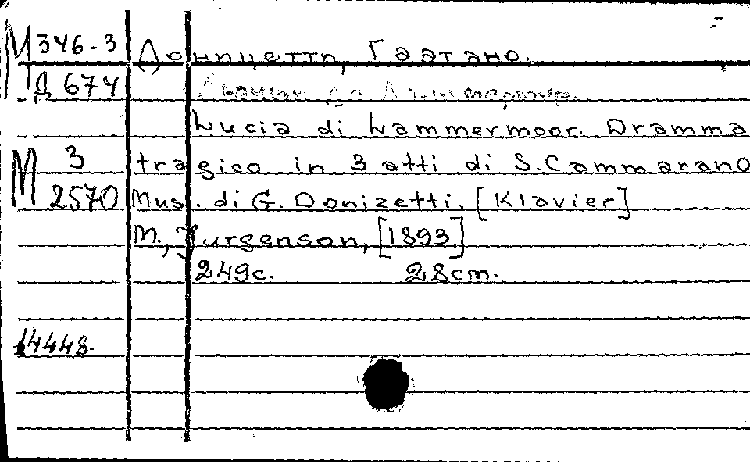 М 346-3 Доницетти, Гаэтано.
Д 674
Lucia di Lammermoor. Dramma
М 3 tragico in 3 atti di S. Cammarano
2570 Mus. di G. Donizetti. [Klavier]
M., Jurgenson, [1893]
249c. 28cm.
14448.